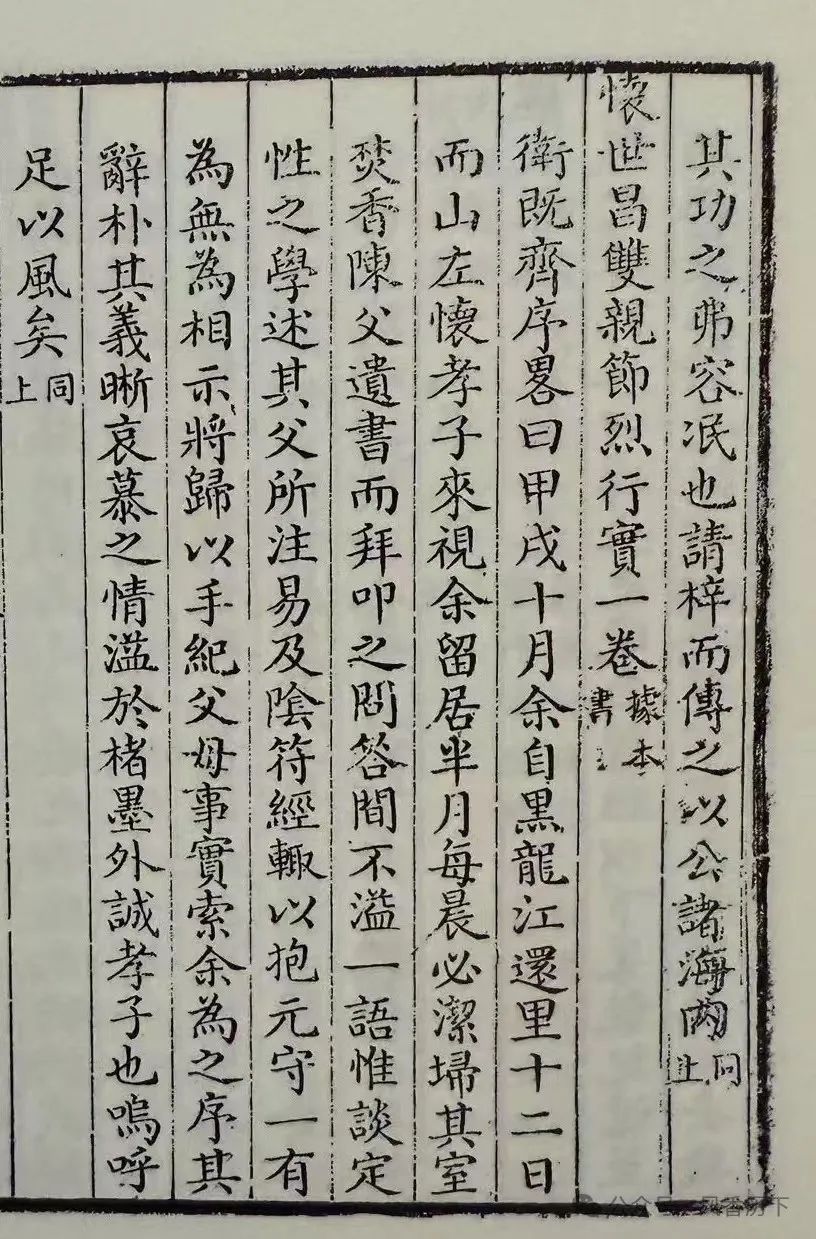 其功之弗容泯也請梓而傳之以公諸海內同上
懷世昌雙親節烈行實一卷據本書
衛既齊序畧曰甲戌十月余自黑龍江還里十二日
而山左懷孝子來視余留居半月每晨必潔埽其室
焚香陳父遺書而拜叩之問答間不溢一語惟談定
性之學述其父所注易及陰符經輙以抱元守一有
為無為相示將歸以手紀父母事實索余為之序其
辭朴其義晰哀慕之情溢於楮墨外誠孝子也嗚呼
足以風矣同上
公众号